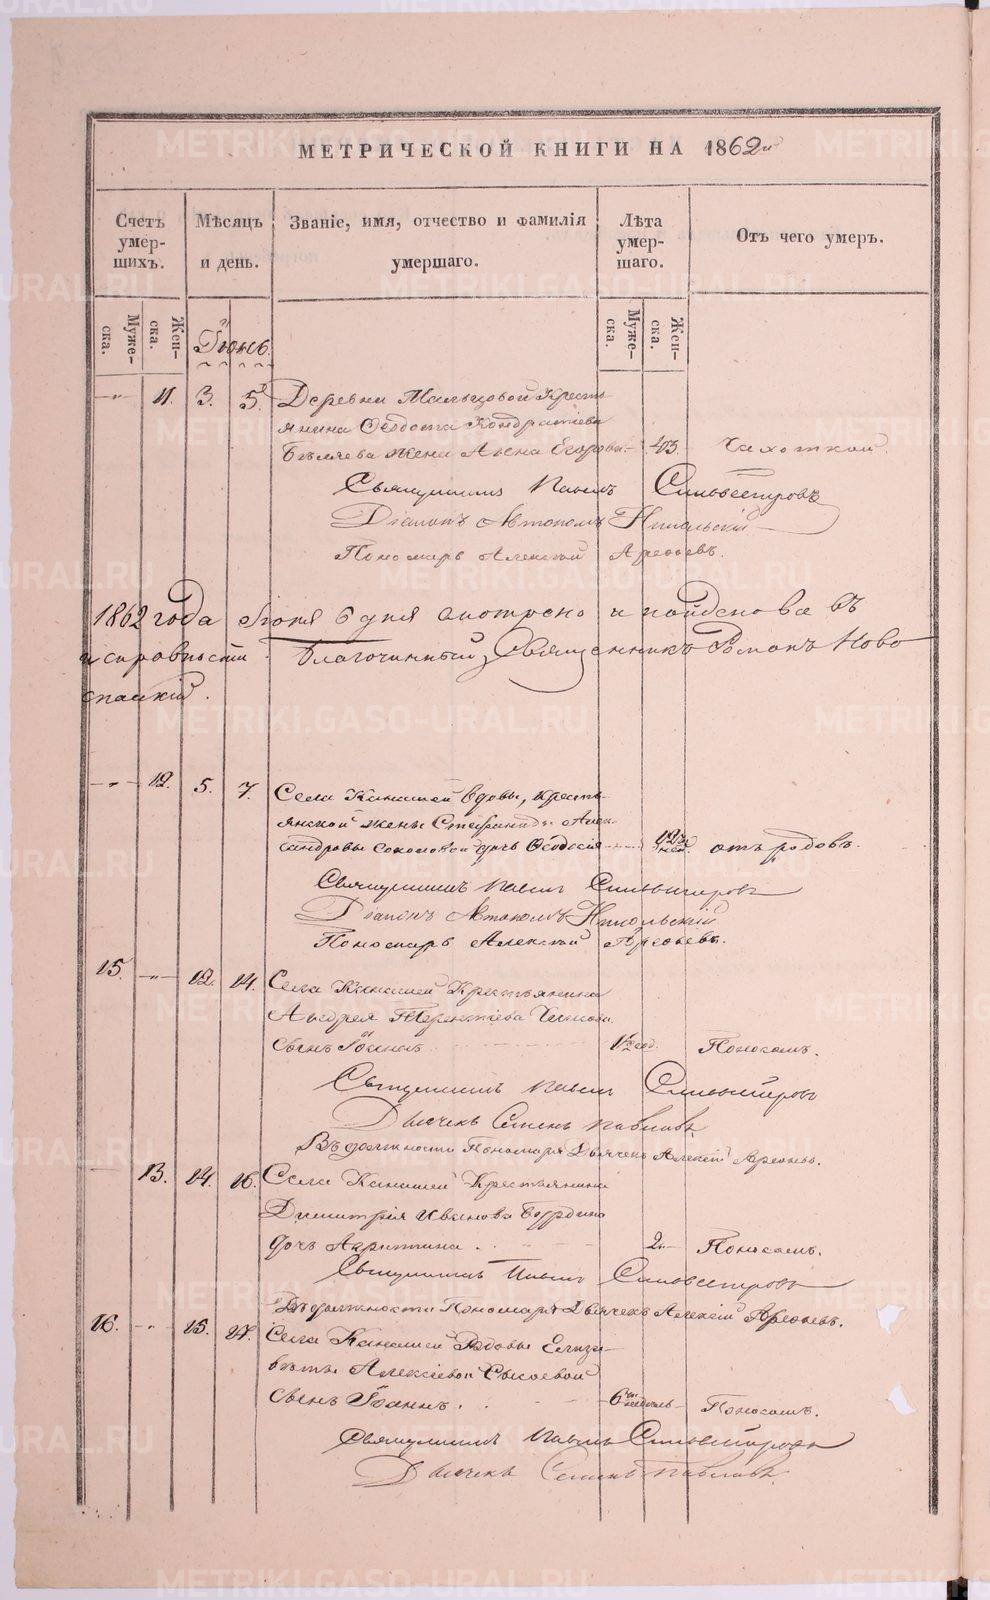 МЕТРИЧЕСКОЙ КНИГИ НА 1862й
Счетъ умер-шихъ.
Мѣсяцъ и день.
Званіе, имя, отчество и фамилія умершаго.
Лѣта умер-шаго.
Отъ чего умеръ.
Муже-ска.
Жен-ска.
Муже-ска.
Жен-ска.
Іюнь.
11. 3. 5. Деревни Мальцовой Кресть
янина Ѳеодота Кондратіева
жена Егорова 43 Чахоткой
Священникъ Павелъ Сильвестровъ
Діаконъ Автономъ Никольскій
Пономарь Алексей Арефьевъ.
1862 года Іюня 6 дня смотрено и найдено все въ
исправности. Благочинный Священникъ Романъ Ново
спаскій.
12. 5. 7. Села Канашей вдовы, кресть-
янской жены Стефаниды Алек-
сандровы Соколовой дочь Ѳеодосія 12 дней. отъ родовъ.
Священникъ Павелъ Сильвестровъ
Діаконъ Автономъ Никольскій
Пономарь Алексей Арефьевъ.
15. 12. 14. Села Канашей Крестьянина
Андрея Терентіева
сынъ Іоаннъ 1½ год. Поносомъ.
Священникъ Павелъ Сильвестровъ
Дьячекъ Семенъ Павловъ.
Въ должности Пономаря Дьячекъ Алексій Арефьевъ.
13. 14. 16. Села Канашей Крестьянина
Димитрія Иванова Бурдина
дочь 2. Поносомъ.
Священникъ Павелъ Сильвестровъ
Въ должности Пономаря Дьячекъ Алексій Арефьевъ.
16. 15. 17. Села Канашей Вдовы Елиза-
веты Алексіевой Сысоевой
сынъ Іоаннъ. 6ти недель Поносомъ.
Священникъ Павелъ Сильвестровъ
Дьячекъ Семенъ Павловъ.
METRIKI.GASO-URAL.RU